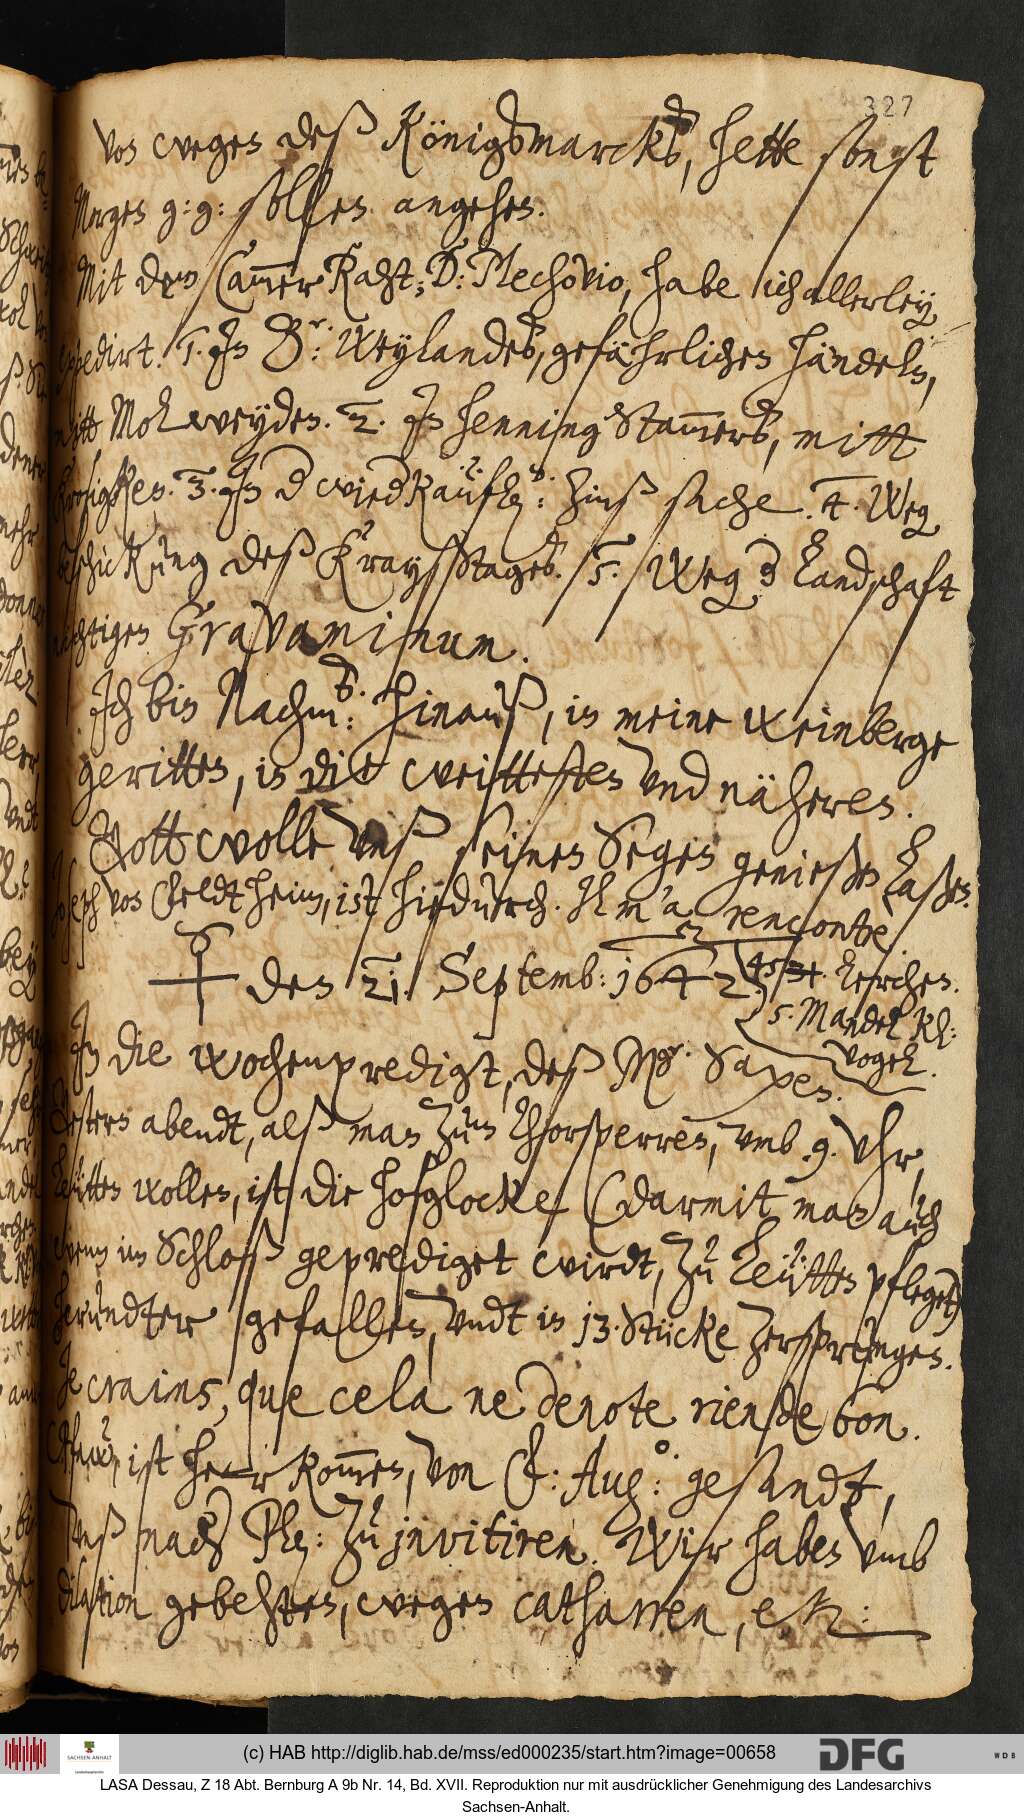 327
von wegen deß Königsmarcks, hette sonst
Morgen g: g: sollen angehen.
Mit dem Cammer Raht, D: Mechovio, habe ich allerley
expedirt. 1. In Dr: Weylandes, gefährlichen händeln,
mitt Molweyden. 2. In henning Stammers, mitt
Krosigken. 3. In d wiedkäufl: Zinß sache. 4. Weg
beschickung deß Krayßtages. 5. Weg d Landschaft
nichtigen Gravaminum.
Ich bin Nachm: hinauß, in meine weinberge
geritten, in die weittesten und näheren.
Gott wolle unß seinen Segen genießen laßen.
von Veldtheim, ist hindurch. Il m'a rencontré
den 21. Septemb: 1642.
45. Lerchen.
5. Mandel kl:
vogel.
In die wochenpredigt, deß Mgr. Saxen.
Gestern abendt, alß man zum Thorsperren, umb .9. uhr,
leütten wollen, ist die hofglocke (darmit man auch
wenn im Schloß geprediget wirdt, zu leütten pfleget)
herundter gefallen, undt in 13. Stücke zersprungen.
Je crains, que cela ne denote rien de bon.
ist herr kommen, von F: Aug: gesandt,
unß nach Pl: zu invitiren. Wir haben umb
dilation gebehten, wegen catharren, etc:
(c) HAB http://diglib.hab.de/mss/ed000235/start.htm?image=00658
SACHSEN-ANHALT
DFG
WDB
LASA Dessau, Z 18 Abt. Bernburg A 9b Nr. 14, Bd. XVII. Reproduktion nur mit ausdrücklicher Genehmigung des Landesarchivs
Sachsen-Anhalt.